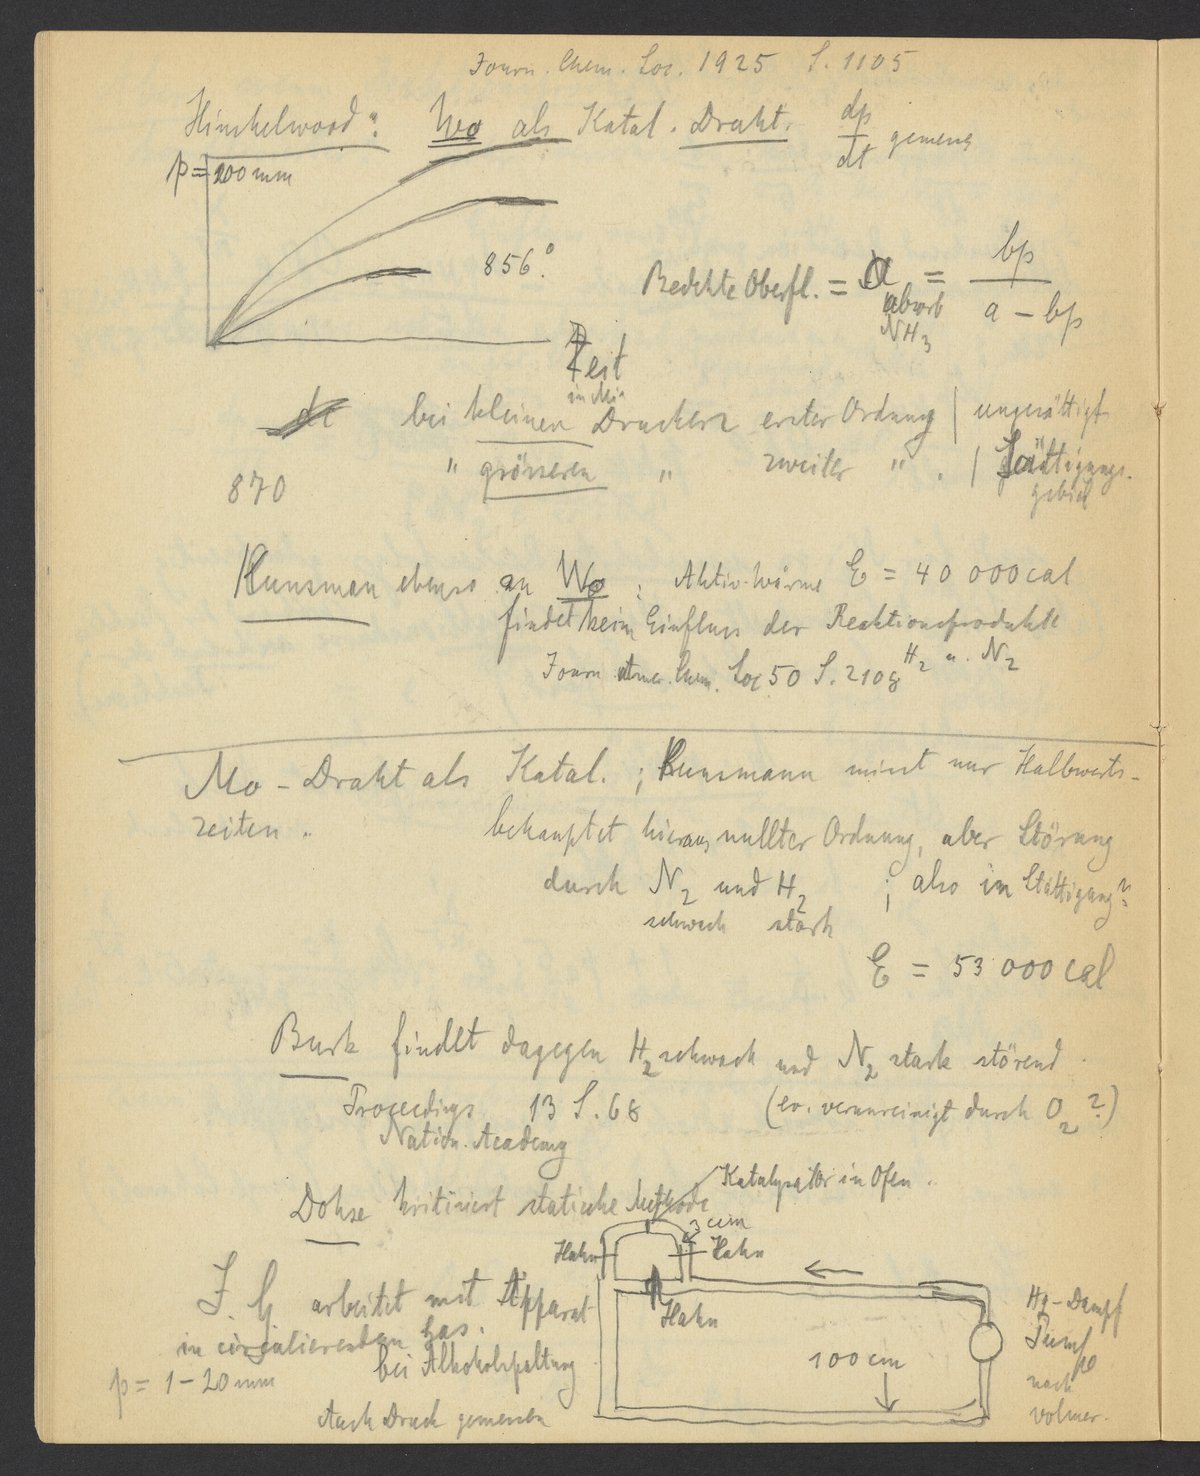 Journ. Chem. Soc. 1925 S. 1105
Hinshelwood: Wo als Katal. Draht. dp/dt gemess
p = 200 mm
856°.
Bedekte Oberfl. = α = bp / a - bp
adsorb
NH3
Zeit
in Min
bei kleinen Drucken erster Ordnung | ungesättigt
" grösseren " zweiter " . | Sättigungs-
gebiet
870
Kunsman ebenso an Wo : Aktiv. Wärme E = 40 000 cal
findet kein Einfluss der Reaktionsprodukte
H2 u. N2
Journ. Amer. Chem. Soc 50 S. 2108
Mo - Draht als Katal. ; Kunsmann misst nur Halbwerts-
zeiten. behauptet hieraus nullter Ordnung, aber Störung
durch N2 und H2 ; also im Sättigung?
schwach stark
E = 53 000 cal
Burk findet dagegen H2 schwach und N2 stark störend.
Proceedings 13 S. 68 (ev. verunreinigt durch O2 ?)
Nation. Academy
Katalysator in Ofen.
Dohse kritisiert statische Methode
3 cm
Hahn Hahn
J. G arbeitet mit Apparat
Hahn
Hg-Dampf
in circulierenden Gas.
Pumpe
bei Alkoholspaltung
100 cm
p = 1-20 mm
nach
Volmer.
Auch Druck gemessen